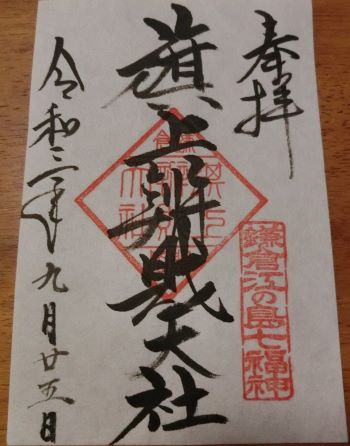 奉拝
鎌倉江の島七福神
旗上辨財天社
令和三年九月廿五日